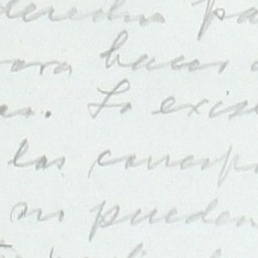 derecho pa
para hacer
as. Lo exis
las corresp
no pueden